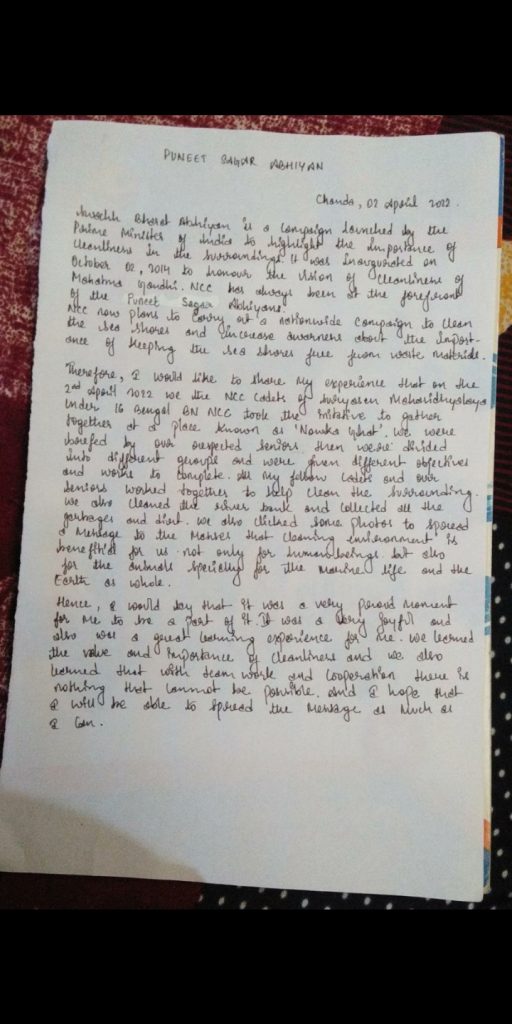 PUNEET SAGAR ABHIYAN
02 April 2022.
Swachh Bharat Abhiyan is a campaign launched by the
Prime Minister of India to highlight the importance of
cleanliness in the surroundings. It was inaugurated on
October 02, 2014 to honour the vision of cleanliness of
Mahatma Gandhi. NCC has always been at the forefront
of the Puneet Sagar Abhiyani.
NCC now plans to carry out a nationwide campaign to clean
the sea shores and increase awarness about the import-
ance of keeping the sea shores free from waste materials.
Therefore, I would like to share my experience that on the
2nd April 2022 we the NCC cadets of Suryasen Mahavidhyalaya
under 16 Bengal BN NCC took the initative to gather
together at a place known as 'Nowka ghat'. We were
by our respected seniors. then we were divided
into different groups and were given different objectives
and works to complete. All my fellow cadets and our
seniors worked together to help clean the surrounding.
We also cleaned the river bank and collected all the
garbages and dirt. We also clicked some photos to spread
a message to the masses that cleaning environment is
for us not only for human beings but also
for the animals specially for the marine life and the
Earth as whole.
Hence, I would say that it was a very proud moment
for me to be a part of it. It was a very joyful and
also was a great learning experience for me. We learned
the value and importance of cleanliness and we also
learned that with team work and cooperation there is
nothing that cannot be possible. And I hope that
I will be able to spread the message as much as
I can.